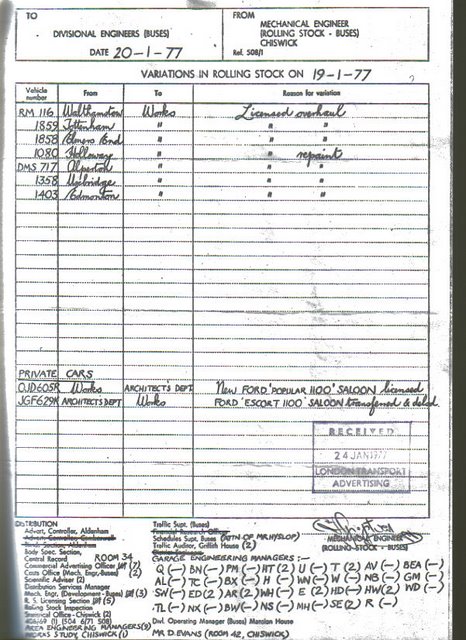 TO
DIVISIONAL ENGINEERS (BUSES)
DATE 20-1-77
FROM
MECHANICAL ENGINEER
(ROLLING STOCK - BUSES)
CHISWICK
Ref. 508/1
VARIATIONS IN ROLLING STOCK ON 19-1-77
Vehicle number From To Reason for variation
RM 116 Walthamstow Works Licensed overhaul
1859 Tottenham " " "
1858 Elmers End " " "
1080 Holloway " " repaint
DMS 717 Alperton " " "
1358 Uxbridge " " "
1403 Edmonton " " "
PRIVATE CARS
OJD605R Works ARCHITECT'S DEPT New FORD 'POPULAR 1100' SALOON licensed
JGF629K ARCHITECT'S DEPT Works FORD 'ESCORT 1100' SALOON transferred & delicd
RECEIVED
24 JAN 1977
LONDON TRANSPORT
ADVERTISING
MECHANICAL ENGINEER
(ROLLING STOCK - BUSES)
DISTRIBUTION
Advert. Controller, Aldenham
Advert. Controller, Camberwell
Body Spec. Section,
Central Record ROOM 34
Commercial Advertising Officer (7)
Costs Office (Mech. Engr.-Buses) (2)
Scientific Adviser (2)
Distribution Services
Mech. Engr. (Development - Buses) (3)
R. S. Licensing Section (5)
Rolling Stock Inspection
Stores Officer - Chiswick (2)
(1) 504 6/71 508)
AREA ENGINEERING MANAGERS(9)
WORKS STUDY, CHISWICK (1)
Traffic Supt. (Buses)
Schedules Supt. (Buses) (ATTN OF MR HYSLOP)
Traffic Auditor, Griffith House (2)
GARAGE ENGINEERING MANAGERS :—
Q (—) BN (—) PM (—) HT (2) U (—) T (2) AV (—) BEA (—)
AL (—) TC (—) BX (—) H (—) WN (—) W (—) NB (—) GM (—)
SW (—) ED (2) AR (2) WH (—) E (2) HD (—) HW (2) WD (—)
TL (—) NX (—) BW (—) NS (—) MH (—) SE (2) R (—)
Divl. Operating Manager (Buses) Mansion House
MR D. EVANS (ROOM 42, CHISWICK)